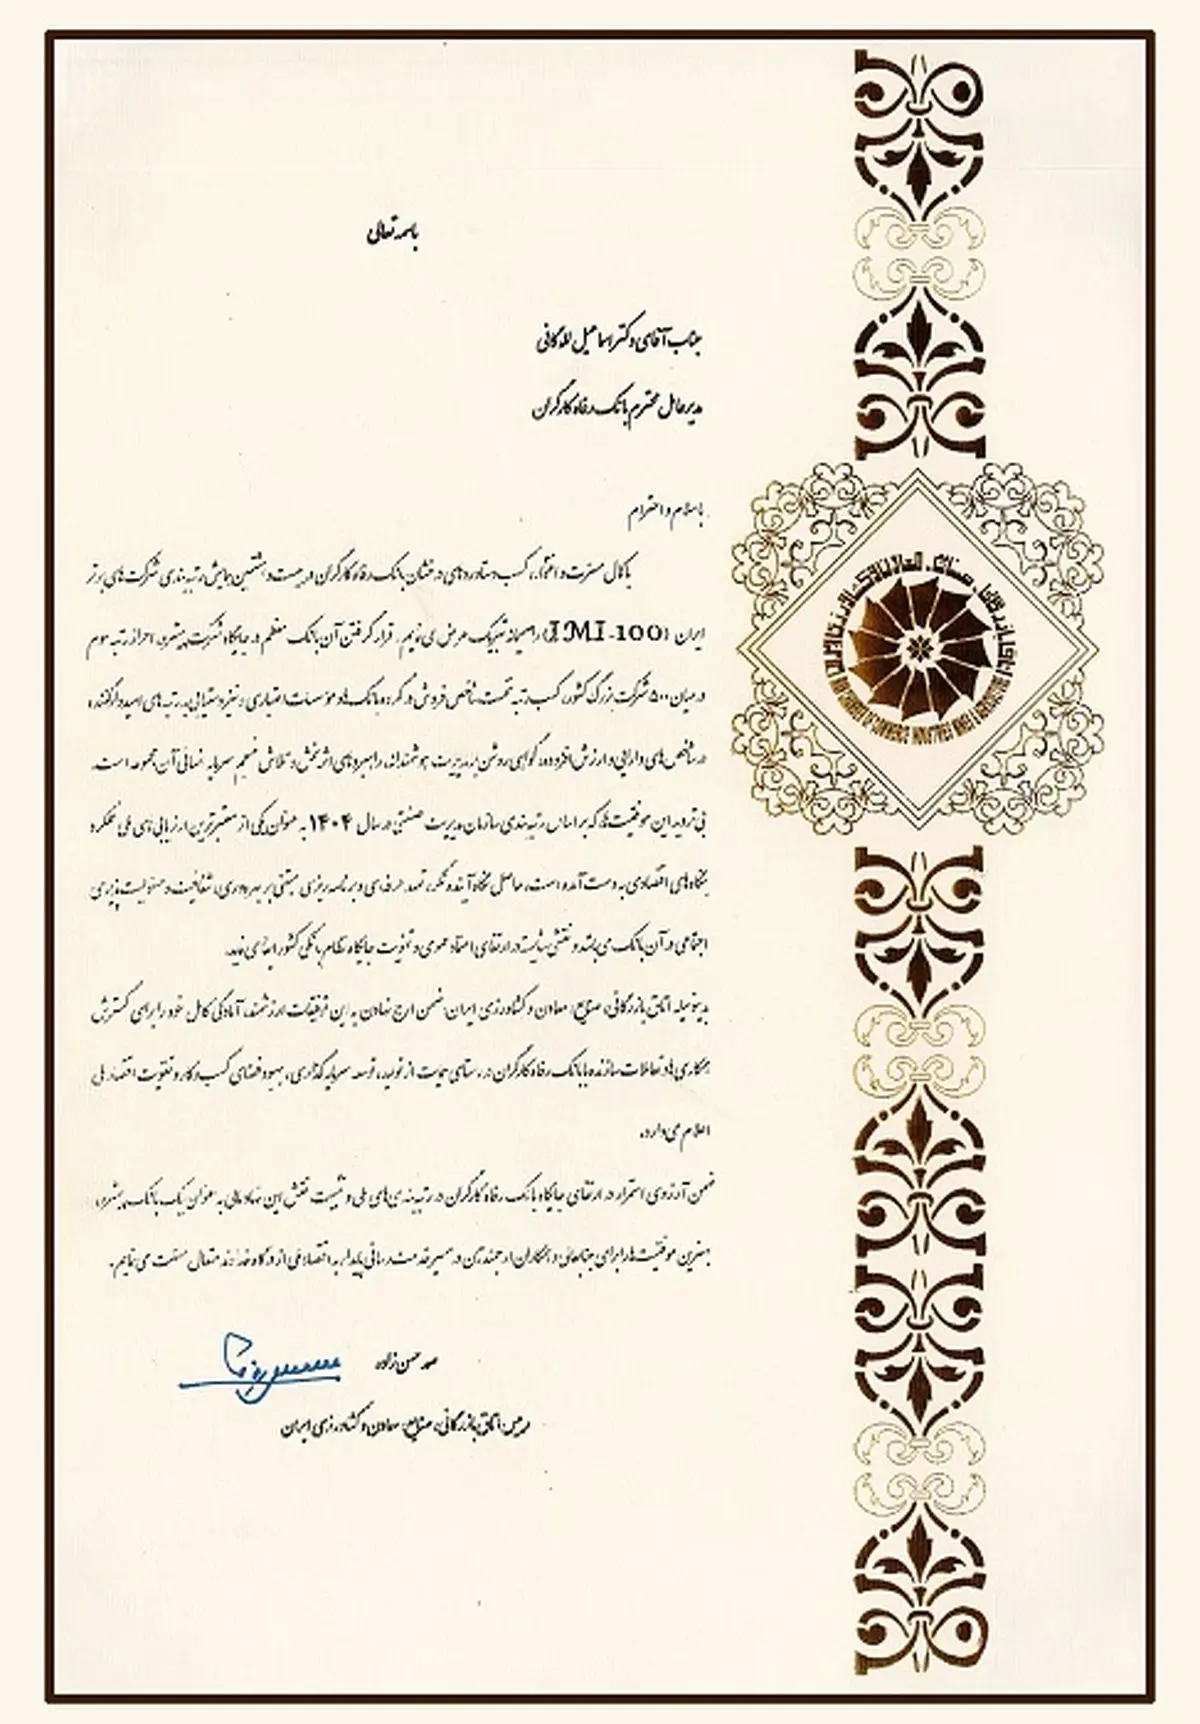 باسمه تعالی
جناب آقای دکتر اسماعیل لله گانی
مدیرعامل محترم بانک رفاه کارگران
با سلام و احترام
با کمال مسرت و افتخار، کسب دستاوردهای درخشان بانک رفاه کارگران در بیست و هشتمین همایش رتبه بندی شرکت های برتر
ایران (IMI-100) را صمیمانه تبریک عرض می نمایم. قرار گرفتن آن بانک معظم در جایگاه شرکت پیشرو، احراز رتبه سوم
در میان ۵۰۰ شرکت بزرگ کشور، کسب رتبه نخست شاخص فروش در گروه بانک ها و مؤسسات اعتباری و نیز دستیابی به رتبه های امیدوارکننده
در شاخص های دارایی و ارزش افزوده، گواهی روشن بر مدیریت هوشمندانه، راهبردهای اثربخش و تلاش منسجم سرمایه انسانی آن مجموعه است.
بی تردید این موفقیت ها که بر اساس رتبه بندی سازمان مدیریت صنعتی در سال ۱۴۰۴ به عنوان یکی از معتبرترین ارزیابی های ملی عملکرد
بنگاه های اقتصادی به دست آمده است، حاصل نگاه آینده نگر، تعهد حرفه ای و برنامه ریزی مبتنی بر بهره وری، شفافیت و مسئولیت پذیری
اجتماعی در آن بانک می باشد و نقشی شایسته در ارتقای اعتماد عمومی و تقویت جایگاه نظام بانکی کشور ایفا می نماید.
بدینوسیله اتاق بازرگانی، صنایع، معادن و کشاورزی ایران، ضمن ارج نهادن به این توفیقات ارزشمند، آمادگی کامل خود را برای گسترش
همکاری ها و تعاملات سازنده با بانک رفاه کارگران در راستای حمایت از تولید، توسعه سرمایه گذاری، بهبود فضای کسب و کار و تقویت اقتصاد ملی
اعلام می دارد.
ضمن آرزوی استمرار در ارتقای جایگاه بانک رفاه کارگران در رتبه بندی های ملی و تثبیت نقش این نهاد مالی به عنوان یک بانک پیشرو،
بهترین موفقیت ها را برای جنابعالی و همکاران ارجمندتان در مسیر خدمت رسانی پایدار به اقتصاد ملی از درگاه خداوند متعال مسئلت می نمایم.
صمد حسن زاده
رییس اتاق بازرگانی، صنایع، معادن و کشاورزی ایران